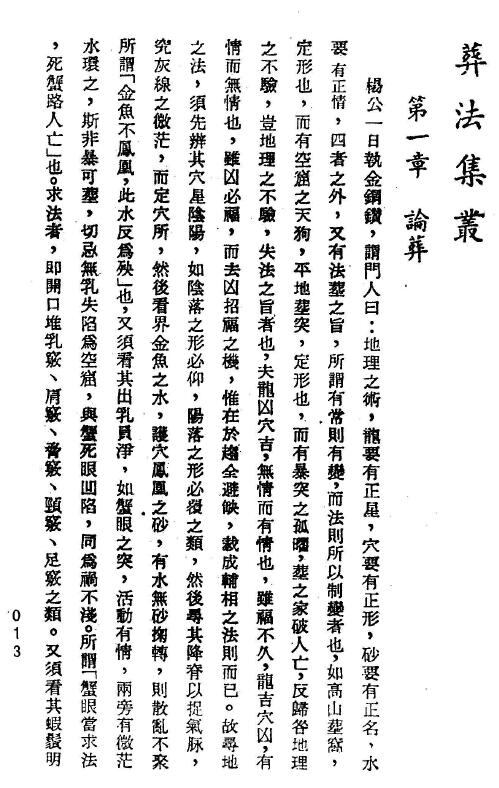 葬法集叢
第一章　論葬
楊公一日執金鋼鑽，謂門人曰：地理之術，龍要有正星，穴要有正形，砂要有正名，水
要有正情，四者之外，又有法葬之旨，所謂有常則有變，而法則所以制變者也，如高山葬窩，
定形也，而有空窟之天狗，平地葬突，定形也，而有暴突之孤曜，葬之家破人亡，反歸咎地理
之不驗，豈地理之不驗，失法之旨者也，夫龍凶穴吉，無情而有情也，雖福不久，龍吉穴凶，有
情而無情也，雖凶必福，而去凶招福之機，惟在於趨全避缺，裁成輔相之法則而已。故尋地
之法，須先辨其穴星陰陽，如陰落之形必仰，陽落之形必覆之類，然後尋其降脊以捉氣脉，
究灰線之微茫，而定穴所，然後看界金魚之水，護穴鳳凰之砂，有水無砂抝轉，則散亂不聚
所謂「金魚不鳳凰，此水反爲殃」也，又須看其出乳員淨，如蟹眼之突，活動有情，兩旁有微茫
水環之，斯非暴可葬，切忌無乳失陷爲空窟，與蟹死眼凹陷，同爲禍不淺。所謂「蟹眼當求法
，死蟹路人亡」也。求法者，即開口堆乳竅、肩竅、脅竅、頸竅、足竅之類。又須看其蝦鬚明
013